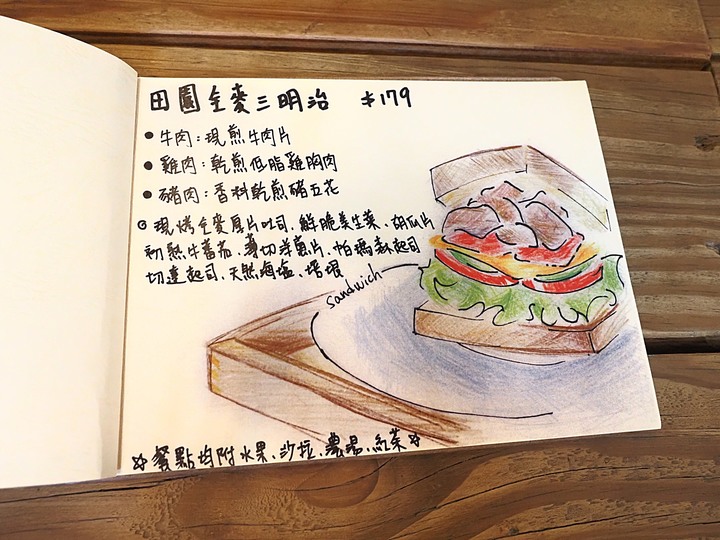 田園全麥三明治 $179
● 牛肉:現煎牛肉片
● 雞肉:乾煎低脂雞胸肉
● 豬肉:香料乾煎豬五花
◎ 現烤全麥厚片吐司、鮮脆美生菜、胡瓜片
初熟牛蕃茄、薄切洋蔥片、帕瑪森起司
切達起司、天然海塩、培根
sandwich
☆餐點均附水果、沙拉、濃湯、紅茶☆